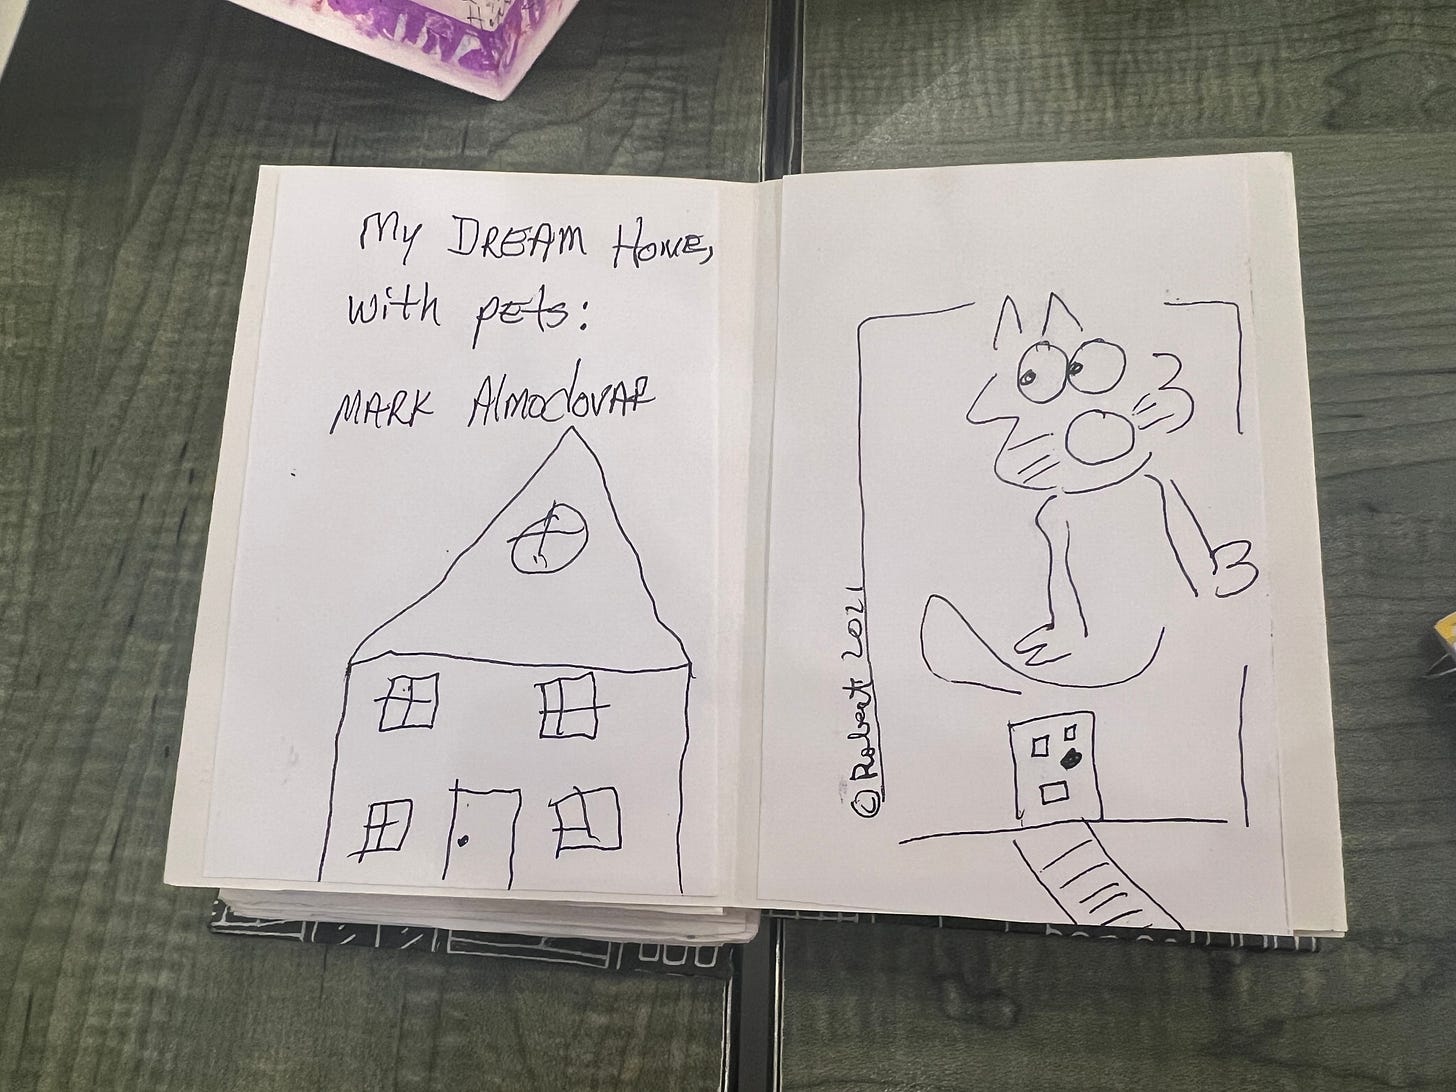 My DREAM HOME,
with pets:
MARK AlmodovAR
© Robert 2021